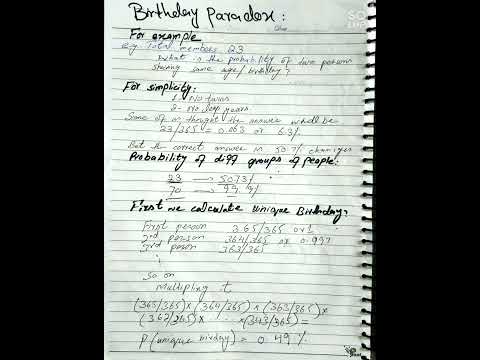 Birthday Paradox:
For example
e.g. Total members 23
What is the probability of two persons
sharing same age/birthday?
For simplicity:
1- No twins
2- No leap years
Some of us thought the answer would be
23/365 = 0.063 or 6.3%
But the correct answer is 50.7% changes
Probability of diff groups of people:
23 → 50.73%
70 → 99.9%
First we calculate unique Birthday?
First person 365/365 or 1
2nd person 364/365 or 0.997
3rd person 363/365
So on
Multiplying it
(365/365) × (364/365) × (363/365) ×
(362/365) × ... × (343/365) =
P(unique birthday) = 0.49%